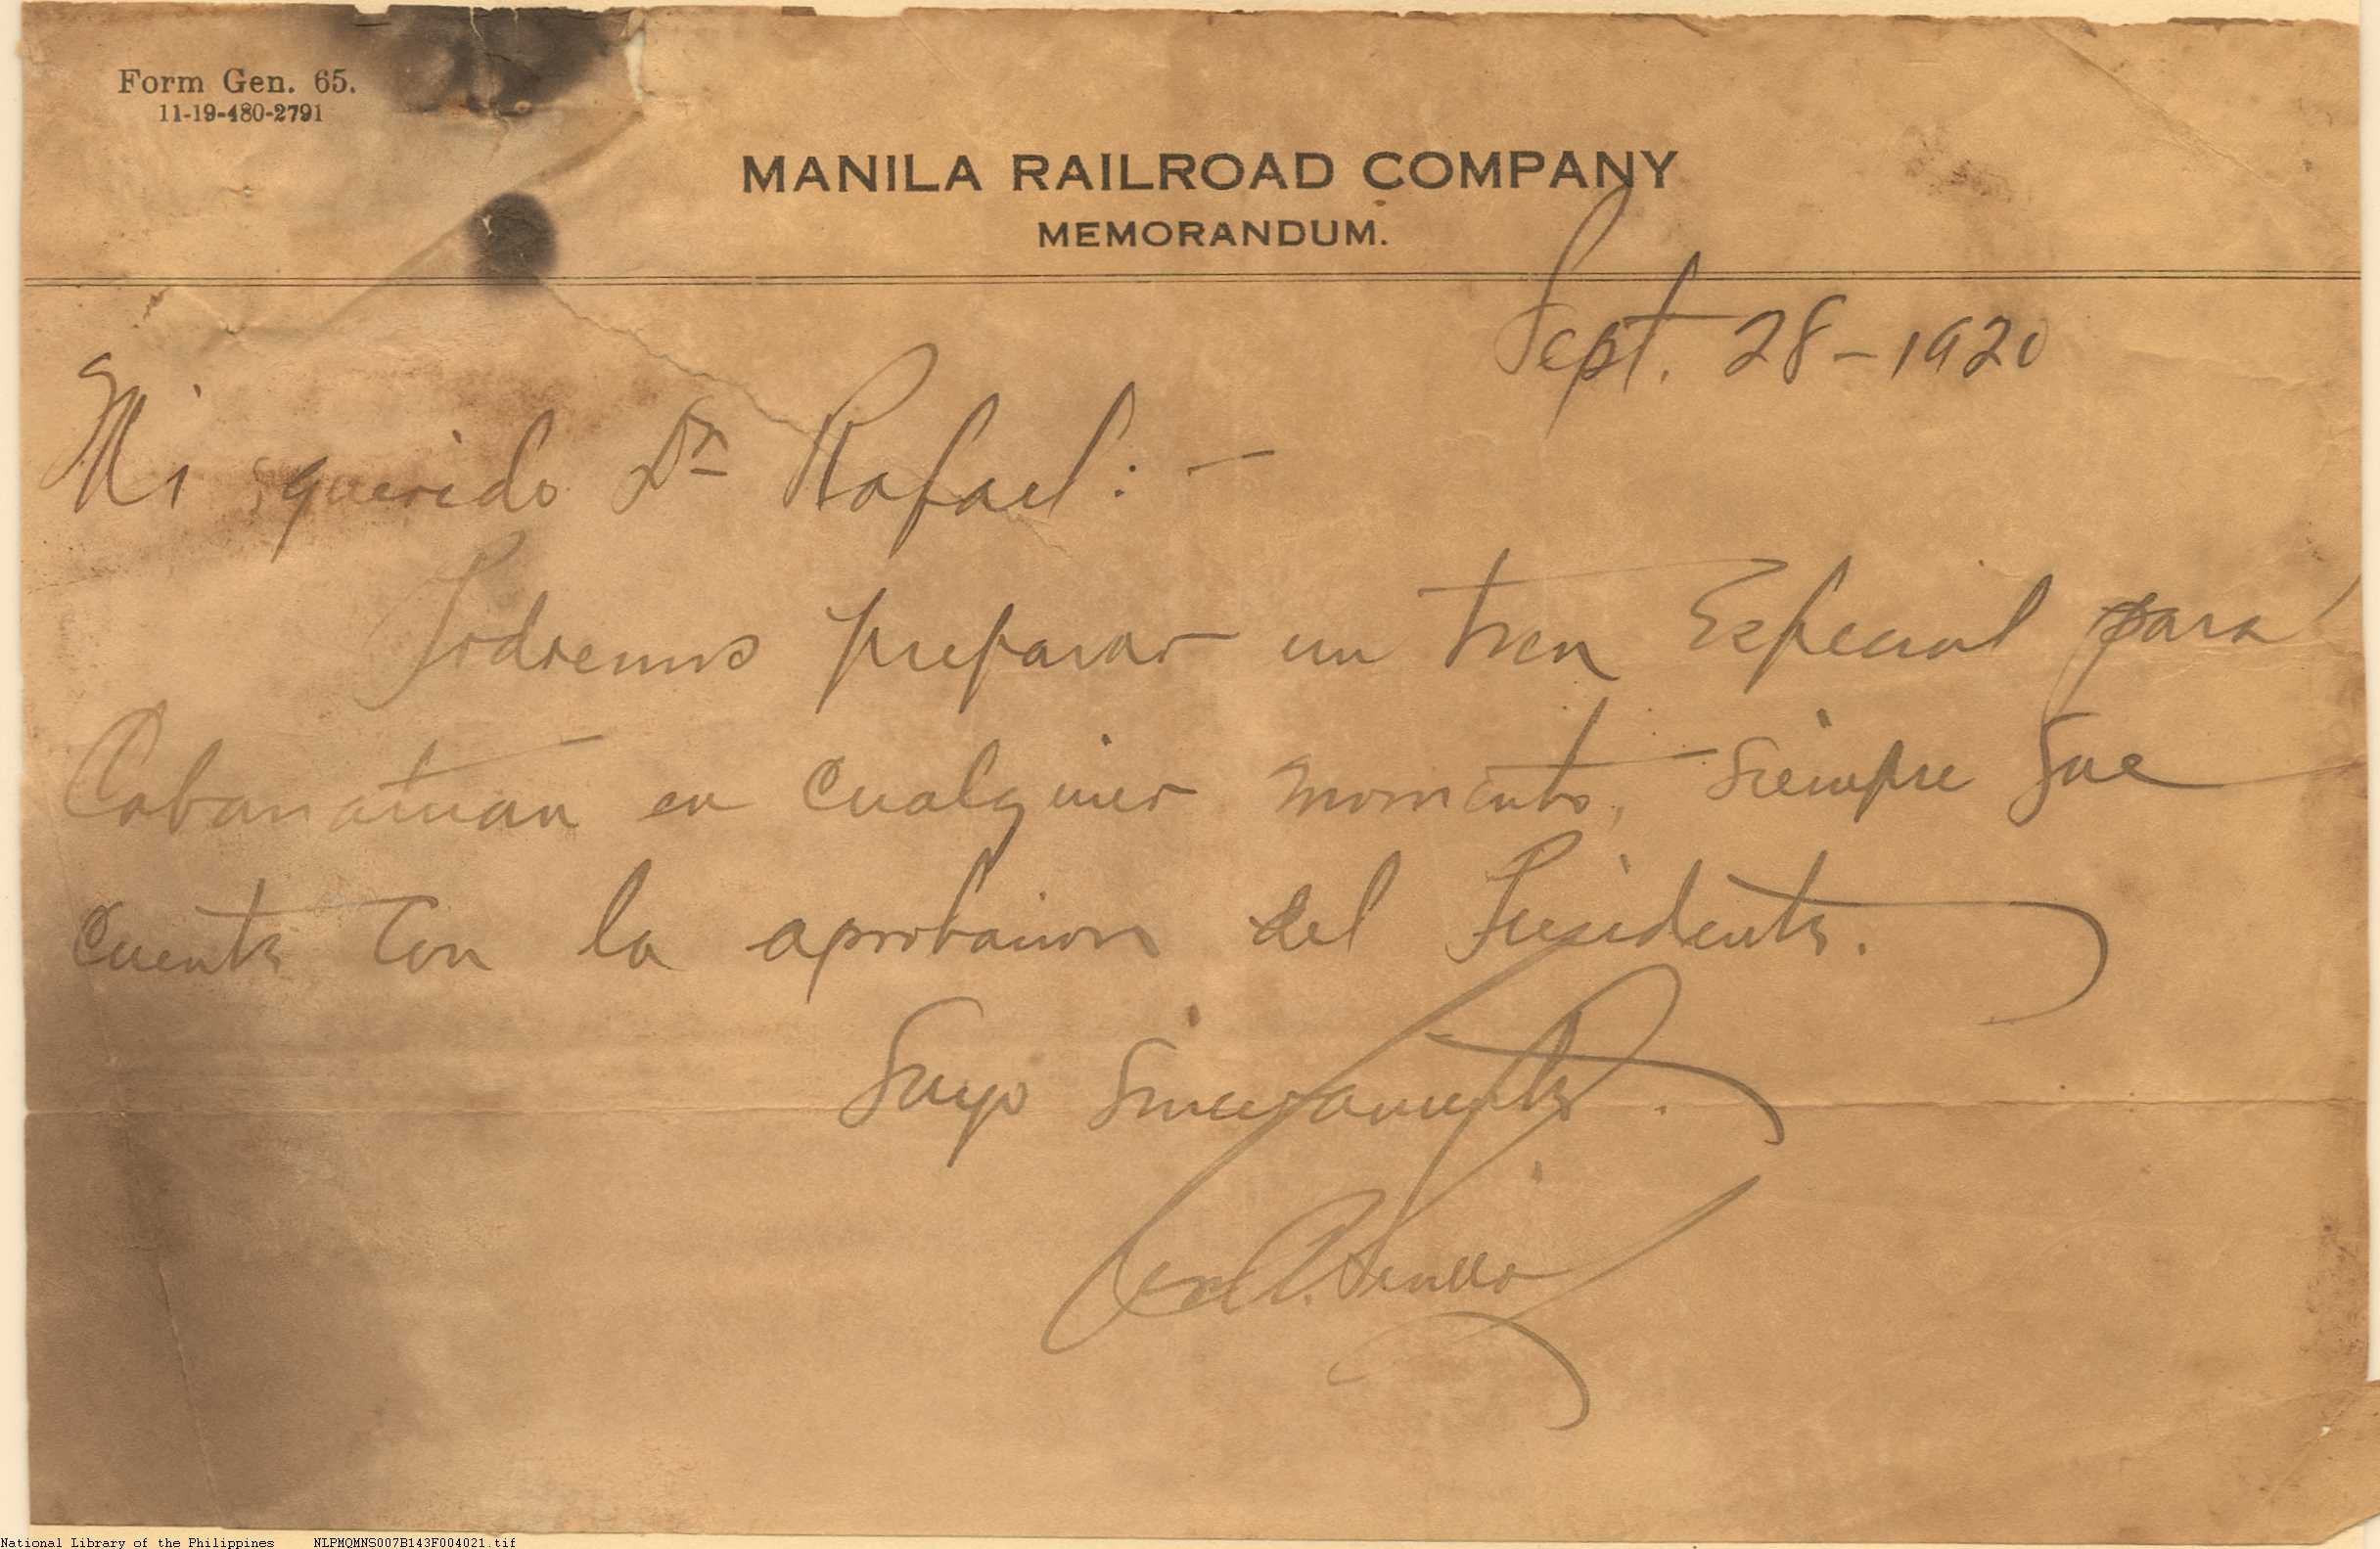 Form Gen. 65.
11-19-480-2791
MANILA RAILROAD COMPANY
MEMORANDUM.
Sept. 28-1920
Mi querido Dn Rafael:-
Podremos preparar un tren Especial para
Cabanatuan en cualquier momento, siempre que
cuente con la aprobacion del Presidente.
Suyo sinceramente.
National Library of the Philippines NLPMQMNS007B143F004021.tif